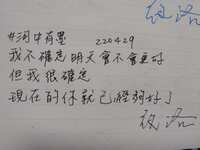 #河中有墨 220429
我不確定明天會不會更好
但我很確定
現在的你就已經夠好」